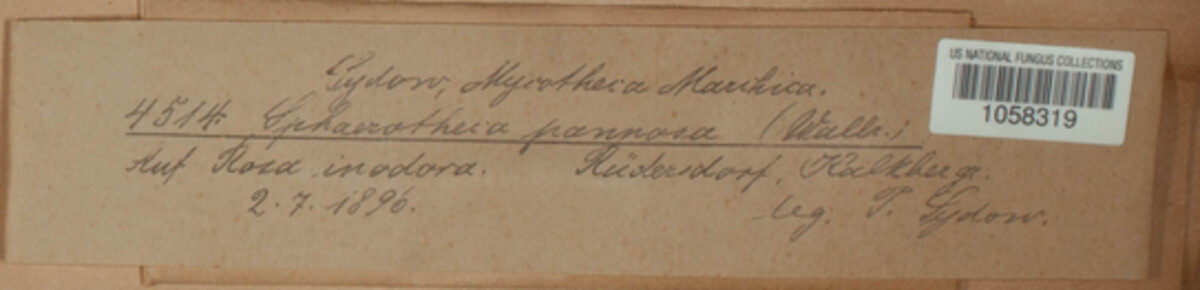 Sydow, Mycotheca Marchica.
4514. Sphaerotheca pannosa (Wallr.)
Auf Rosa inodora. Rüdersdorf, Kalkberge.
2. 7. 1896. leg. P. Sydow.
US NATIONAL FUNGUS COLLECTIONS
1058319